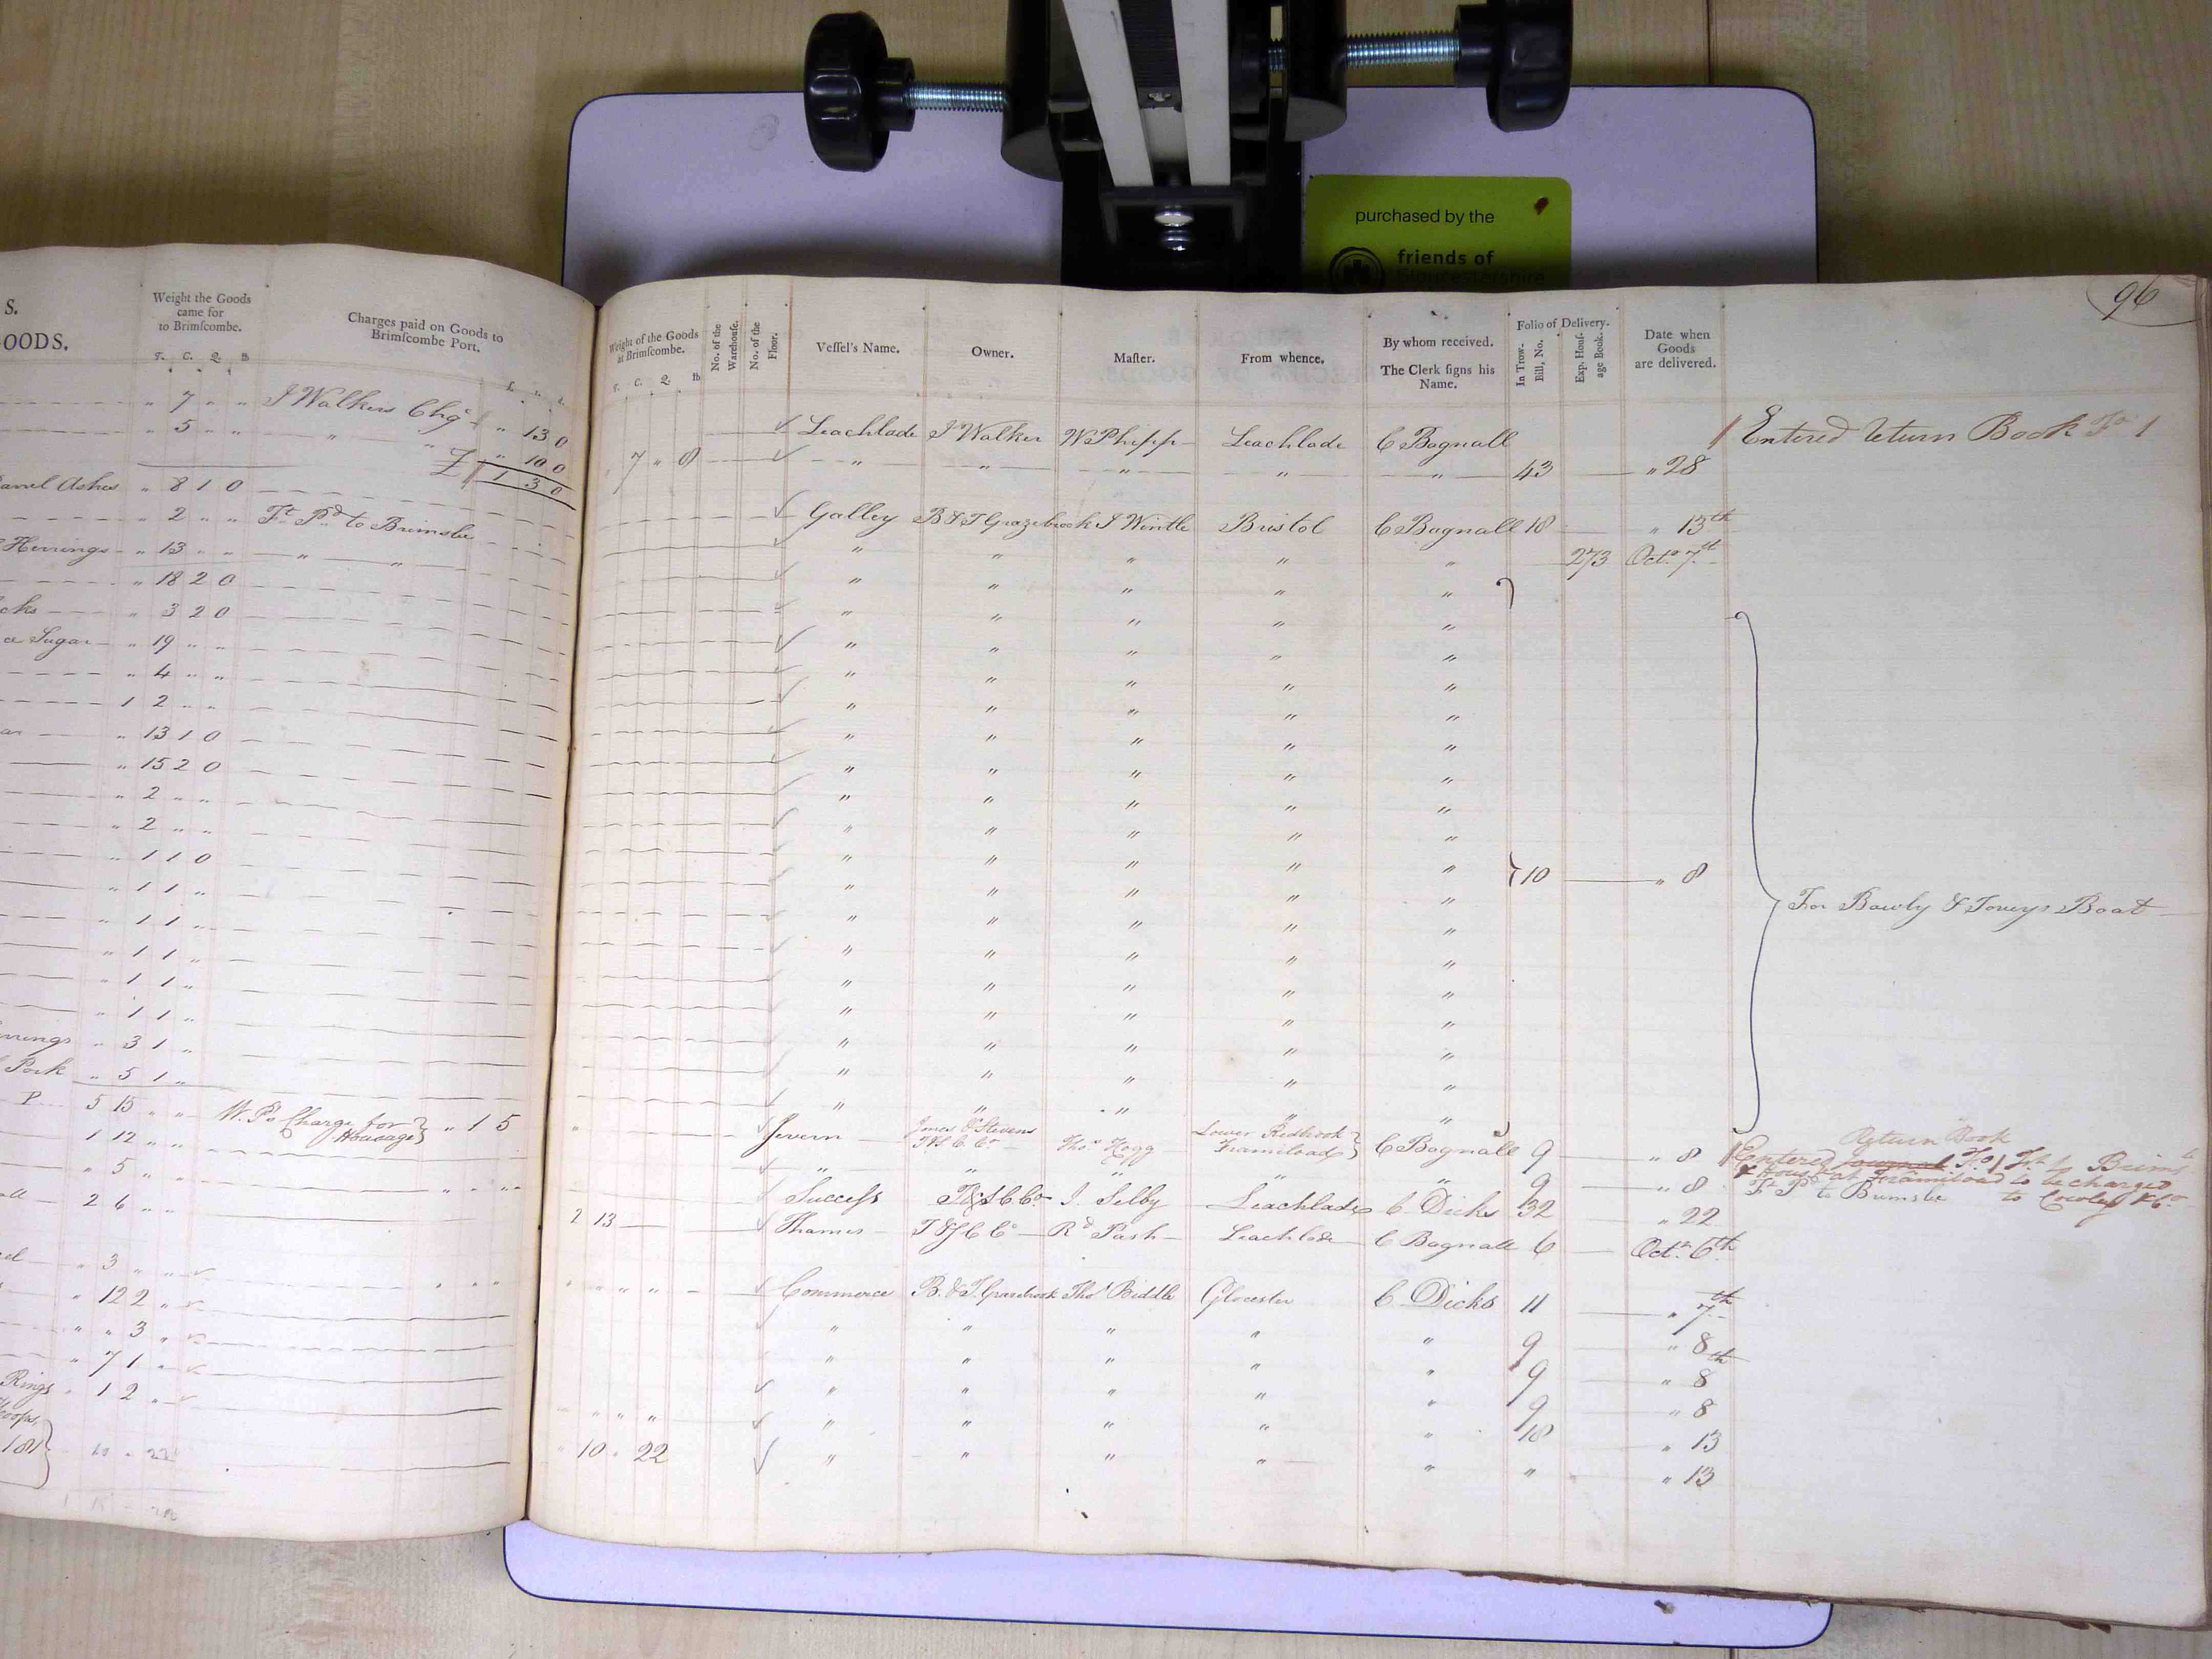 purchased by the
friends of
Gloucestershire
96
S.
OODS.
Weight the Goods
came for
to Brimſcombe.
T. C. Q. lb
Charges paid on Goods to
Brimſcombe Port.
" 7 " " J Walkers Chg^e " 13 0
" 5 " " " " " 10 0
£ 1 3 0
Barrel Ashes " 8 1 0
" 2 " " F^t P^d to Brimsbe
Herrings " 13 " " " "
" 18 2 0
cks " 3 2 0
ce Sugar " 19 " "
" 4 " "
1 2 " "
ar " 13 1 0
" 15 2 0
" 2 " "
" 2 " "
" 1 1 0
" 1 1 "
" 1 1 "
" 1 1 "
" 1 1 "
" 1 1 "
errings " 3 1 "
Pork " 5 1 "
P 5 15 " " W. P^s Charge for " 1 5
Housage
1 12 " "
" 5 " "
2 6 " "
" 3 " "
" 12 2 "
" " 3 "
" 7 1 "
Rings " 1 2 "
Hoops,
181
Weight of the Goods
at Brimſcombe.
T. C. Q. lb
No. of the
Warehouſe.
No. of the
Floor.
Veſſel's Name.
Owner.
Maſter.
From whence.
By whom received.
The Clerk ſigns his
Name.
Folio of Delivery.
In Trow-
Bill, No.
Exp. Houſ-
age Book.
Date when
Goods
are delivered.
Leachlade J Walker W Phipp Leachlade C Bagnall Entered return Book Fo 1
7 " 0 " " " " " 43 " 28
Galley B & T Grazebrook J Wintle Bristol C Bagnall 18 " 13th
" " " " " 273 Oct^r 7th
" " " " "
" " " " "
" " " " "
" " " " "
" " " " "
" " " " "
" " " " "
" " " " "
" " " " "
" " " " " 10 " 8
" " " " " For Bowly & Toveys Boat
" " " " "
" " " " "
" " " " "
" " " " "
" " " " "
" " " " "
" " " " "
Return Book
Severn Jones & Stevens Lower Redbrook
T & S C C^o Tho^s Hogg Framiload C Bagnall 9 " 8 Entered Journal Fo 1 F^t to Brims
" " " " " 9 " 8 & Hous^e at Framiload to be charged
Success T & S C C^o J. Selby Leachlade C. Dicks 32 " 22 F^t P^d to Brimsbe to Cowley & C^o
2 13 Thames T & S C C^o R^d Pash Leachlade C Bagnall 6 Oct^r 6th
Commerce B. & T. Grazebrook Tho^s Biddle Glocester C. Dicks 11 " 7th
" " " " " 9 " 8th
" " " " " 9 " 8
" " " " " 9 " 8
" " " " " 18 " 13
10 " 22 " " " " " " " 13